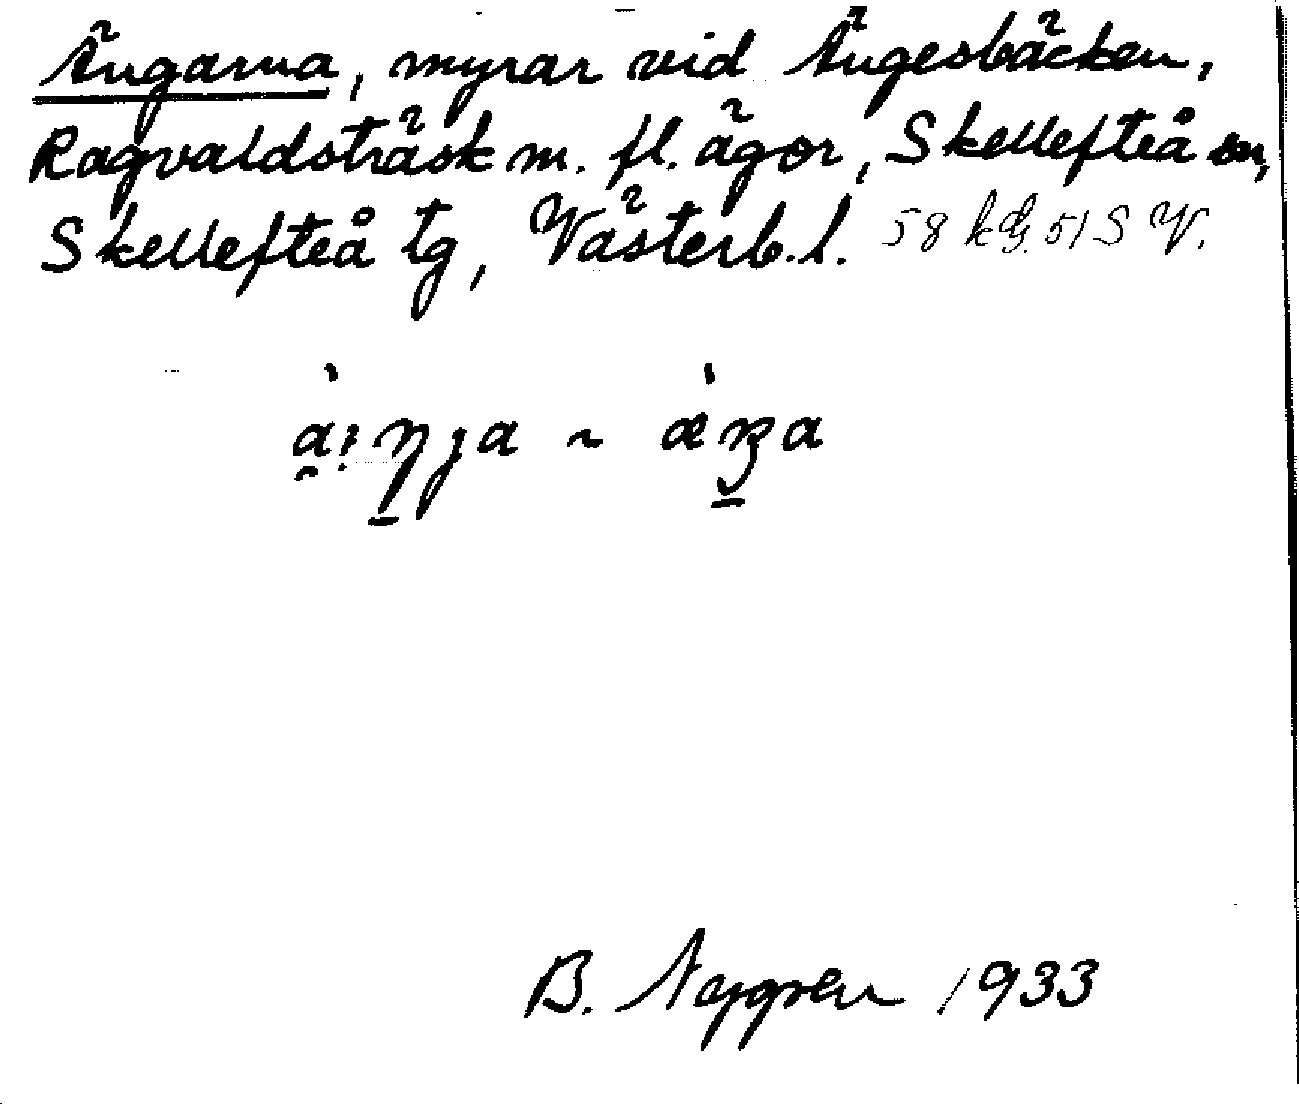 Ängarna, myrar vid Ängesbäcken,
Ragvaldsträsk m. fl. ägor, Skellefteå sn,
Skellefteå tg, Västerb. l. 58 kg. 51 S V.
B. Nygren 1933